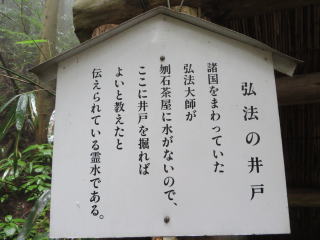 弘法の井戸
諸国をまわっていた
弘法大師が
刎石茶屋に水がないので、
ここに井戸を掘れば
よいと教えたと
伝えられている霊水である。